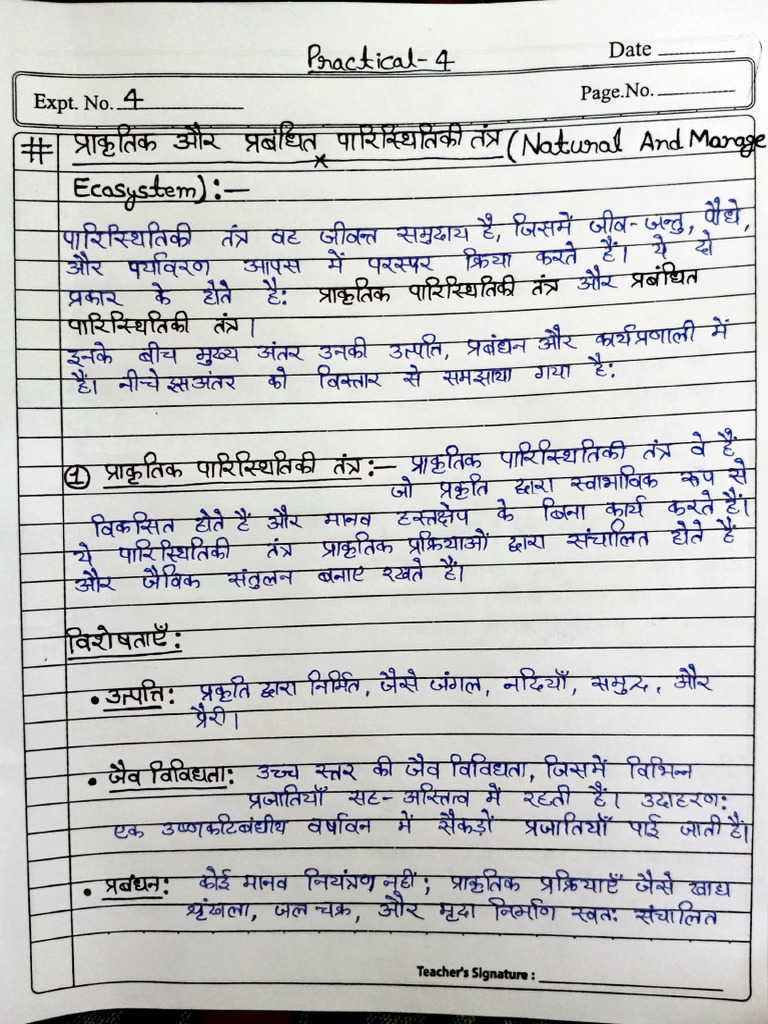 Practical-4
Date
Expt. No. 4
Page.No.
# प्राकृतिक और प्रबंधित पारिस्थितिकी तंत्र (Natural And Manage
Ecosystem):-
पारिस्थितिकी तंत्र वह जीवन्त समुदाय है, जिसमें जीव-जन्तु, पौधे,
और पर्यावरण आपस में परस्पर क्रिया करते हैं। ये दो
प्रकार के होते है: प्राकृतिक पारिस्थितिकी तंत्र और प्रबंधित
पारिस्थितिकी तंत्र।
इनके बीच मुख्य अंतर उनकी उत्पति, प्रबंधन और कार्यप्रणाली में
हैं। नीचे इस अंतर को विस्तार से समझाया गया है:
① प्राकृतिक पारिस्थितिकी तंत्र :- प्राकृतिक पारिस्थितिकी तंत्र वे है
जो प्रकृति द्वारा स्वाभाविक रूप से
विकसित होते हैं और मानव हस्तक्षेप के बिना कार्य करते हैं।
ये पारिस्थितिकी तंत्र प्राकृतिक प्रक्रियाओं द्वारा संचालित होते हैं
और जैविक संतुलन बनाए रखते हैं।
विशेषताएँ:
• उत्पत्ति: प्रकृति द्वारा निर्मित, जैसे जंगल, नदियाँ, समुद्र, और
प्रैरी।
• जैव विविधता: उच्च स्तर की जैव विविधता, जिसमें विभिन्न
प्रजातियाँ सह-अस्तित्व में रहती हैं। उदाहरण:
एक उष्णकटिबंधीय वर्षावन में सैकड़ों प्रजातियाँ पाई जाती हैं।
• प्रबंधन: कोई मानव नियंत्रण नहीं; प्राकृतिक प्रक्रियाएँ जैसे खाद्य
श्रृंखला, जल चक्र, और मृदा निर्माण स्वतः संचालित
Teacher's Signature :